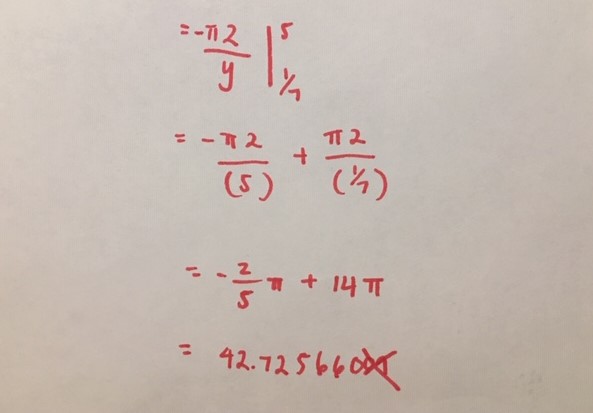 = -π2/y |_{1/7}^{5}
= -π2/(5) + π2/(1/7)
= -2/5 π + 14π
= 42.7256600